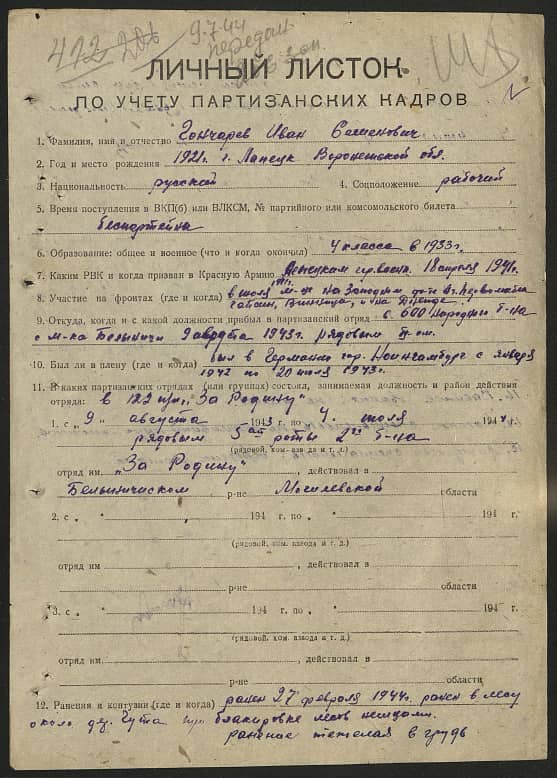 412 206 9.7.44
передан
ЛИЧНЫЙ ЛИСТОК
ПО УЧЕТУ ПАРТИЗАНСКИХ КАДРОВ
1. Фамилия, имя и отчество Гончарев Иван Семенович
2. Год и место рождения 1921 г. г. Липецк Воронежской обл.
3. Национальность русский 4. Соцположение рабочий
5. Время поступления в ВКП(б) или ВЛКСМ, № партийного или комсомольского билета
беспартейный
6. Образование: общее и военное (что и когда окончил) 4 класса в 1933 г.
7. Каким РВК и когда призван в Красную Армию 18 апреля 1941 г.
8. Участие на фронтах (где и когда) в июля м-це на Западном
Винница, и на Днепре
9. Откуда, когда и с какой должности прибыл в партизанский отряд с 600 народный б-на
с м-ка Белыничи 9 августа 1943 г. рядовым
10. Был ли в плену (где и когда) был в Германии гор. с января
1942 по 20 июля 1943 г.
11. В каких партизанских отрядах (или группах) состоял, занимаемая должность и район действия
отряда: в 122 „За Родину"
1. с „9„ августа 1943 г. по „4. июля 1944 г.
рядовым 5ой роты 2го б-на
(рядовой, ком. взвода и т. д.)
отряд им „За Родину" , действовал в
Белыничиском р-не Могилевской области
2. с „ " 194 г. по „ " 194 г.
(рядовой, ком. взвода и т. д.)
отряд им , действовал в
р-не области
3. с „ " 194 г. по „ " 194 г.
(рядовой, ком. взвода и т. д.)
отряд им , действовал в
р-не области
12. Ранения и контузии (где и когда) ранен 27 февраля 1944 г. ранен в лесу
около д. Гута при блакировке лесов немцами.
ранение тежелая в грудь